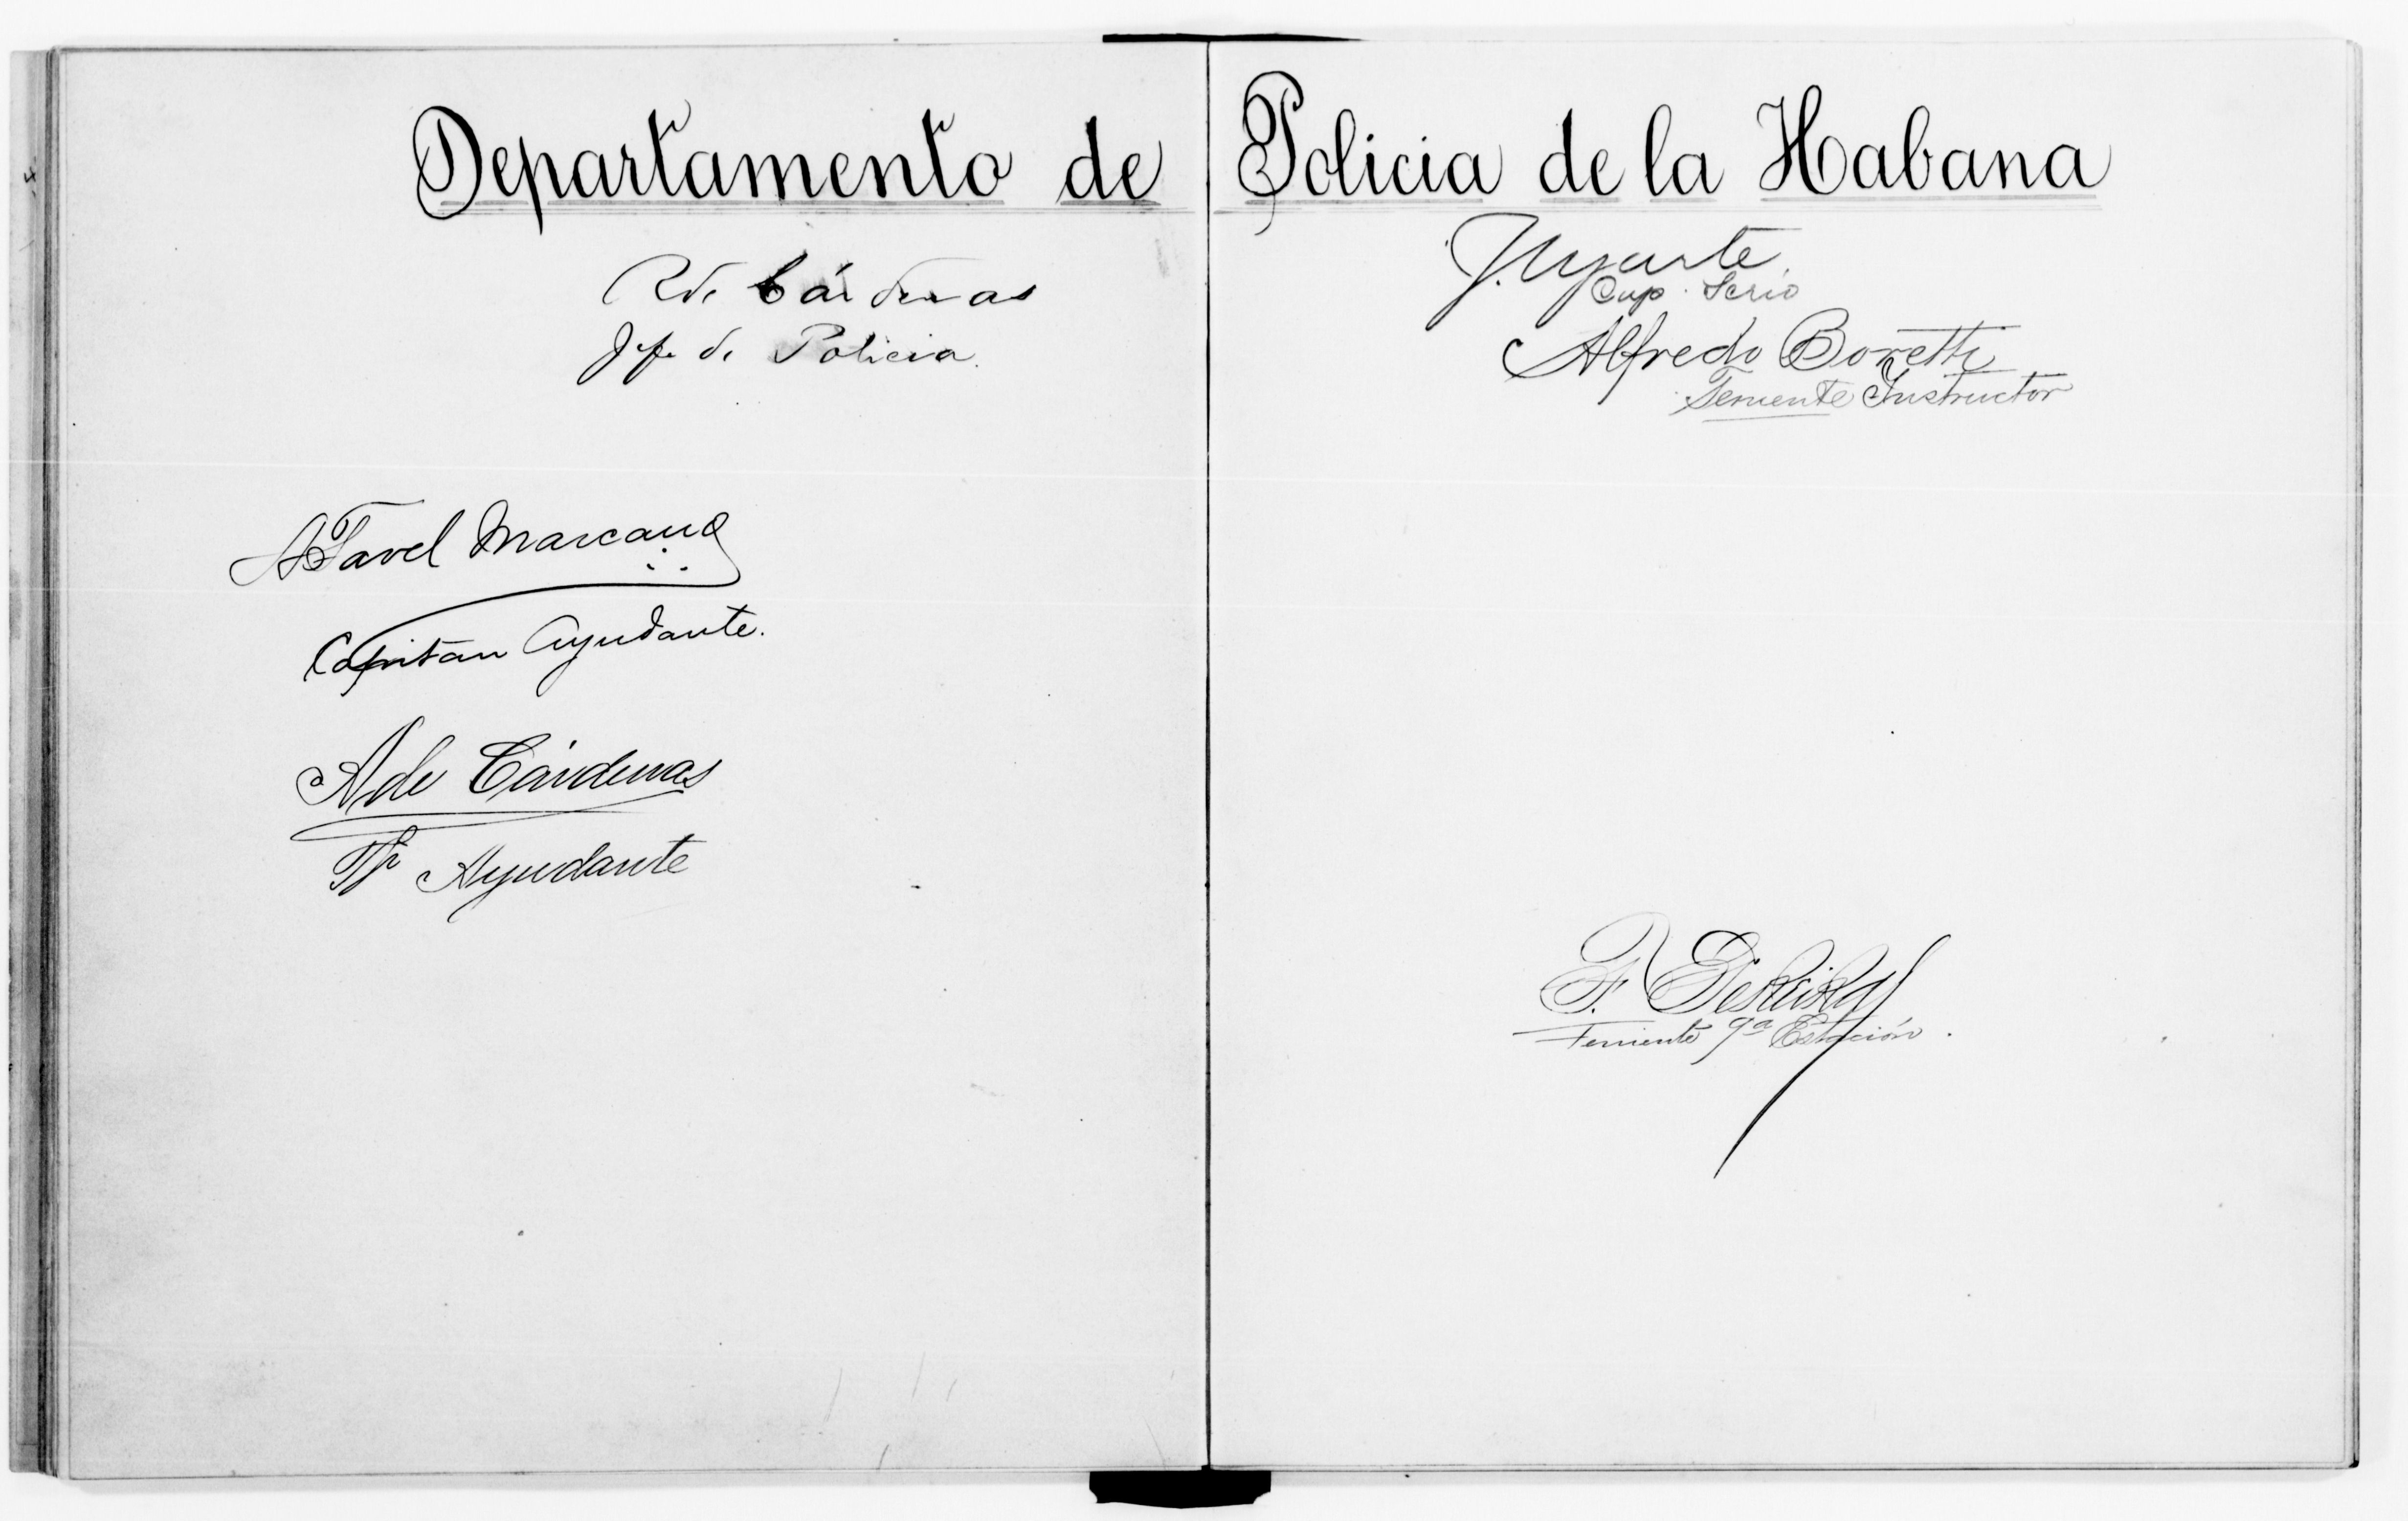 Departamento de Policia de la Habana
R de Cárdenas
Jefe de Policia.
A Tavel Marcano
Capitan Ayudante.
A de Cárdenas
Ayudante
J. Ugarte
Cap. Scrio
Alfredo Boretti
Teniente Instructor
F. Pereira
Teniente 9ª Estación.